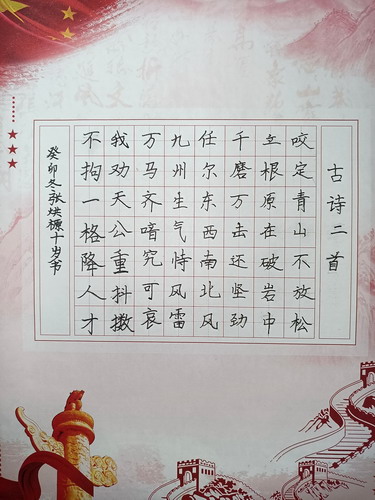 古诗二首
咬定青山不放松
立根原在破岩中
千磨万击还坚劲
任尔东西南北风
九州生气恃风雷
万马齐喑究可哀
我劝天公重抖擞
不拘一格降人才
癸卯冬张十岁书